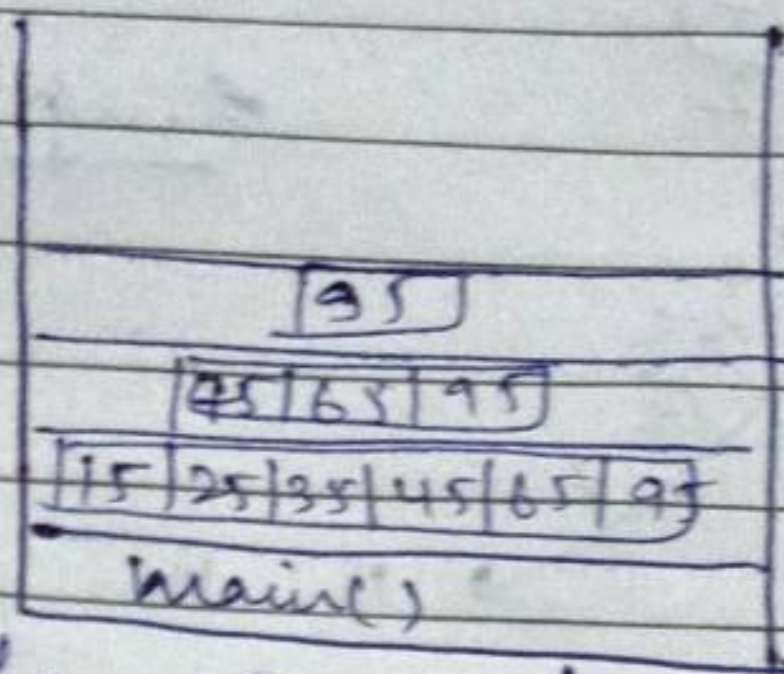 95
45 65 95
15 25 35 45 65 95
main()